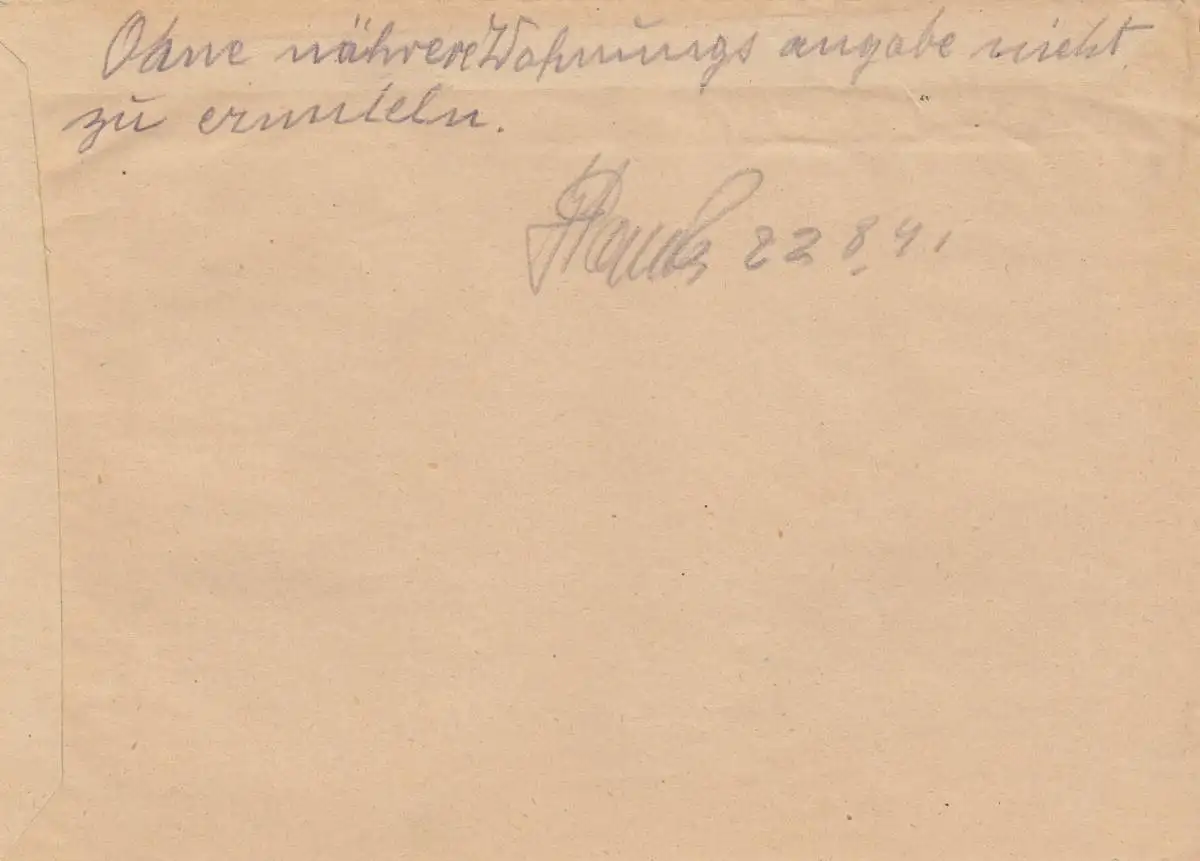 Ohne nährere Wohnungs angabe nicht
zu ermiteln.
22 8. 41